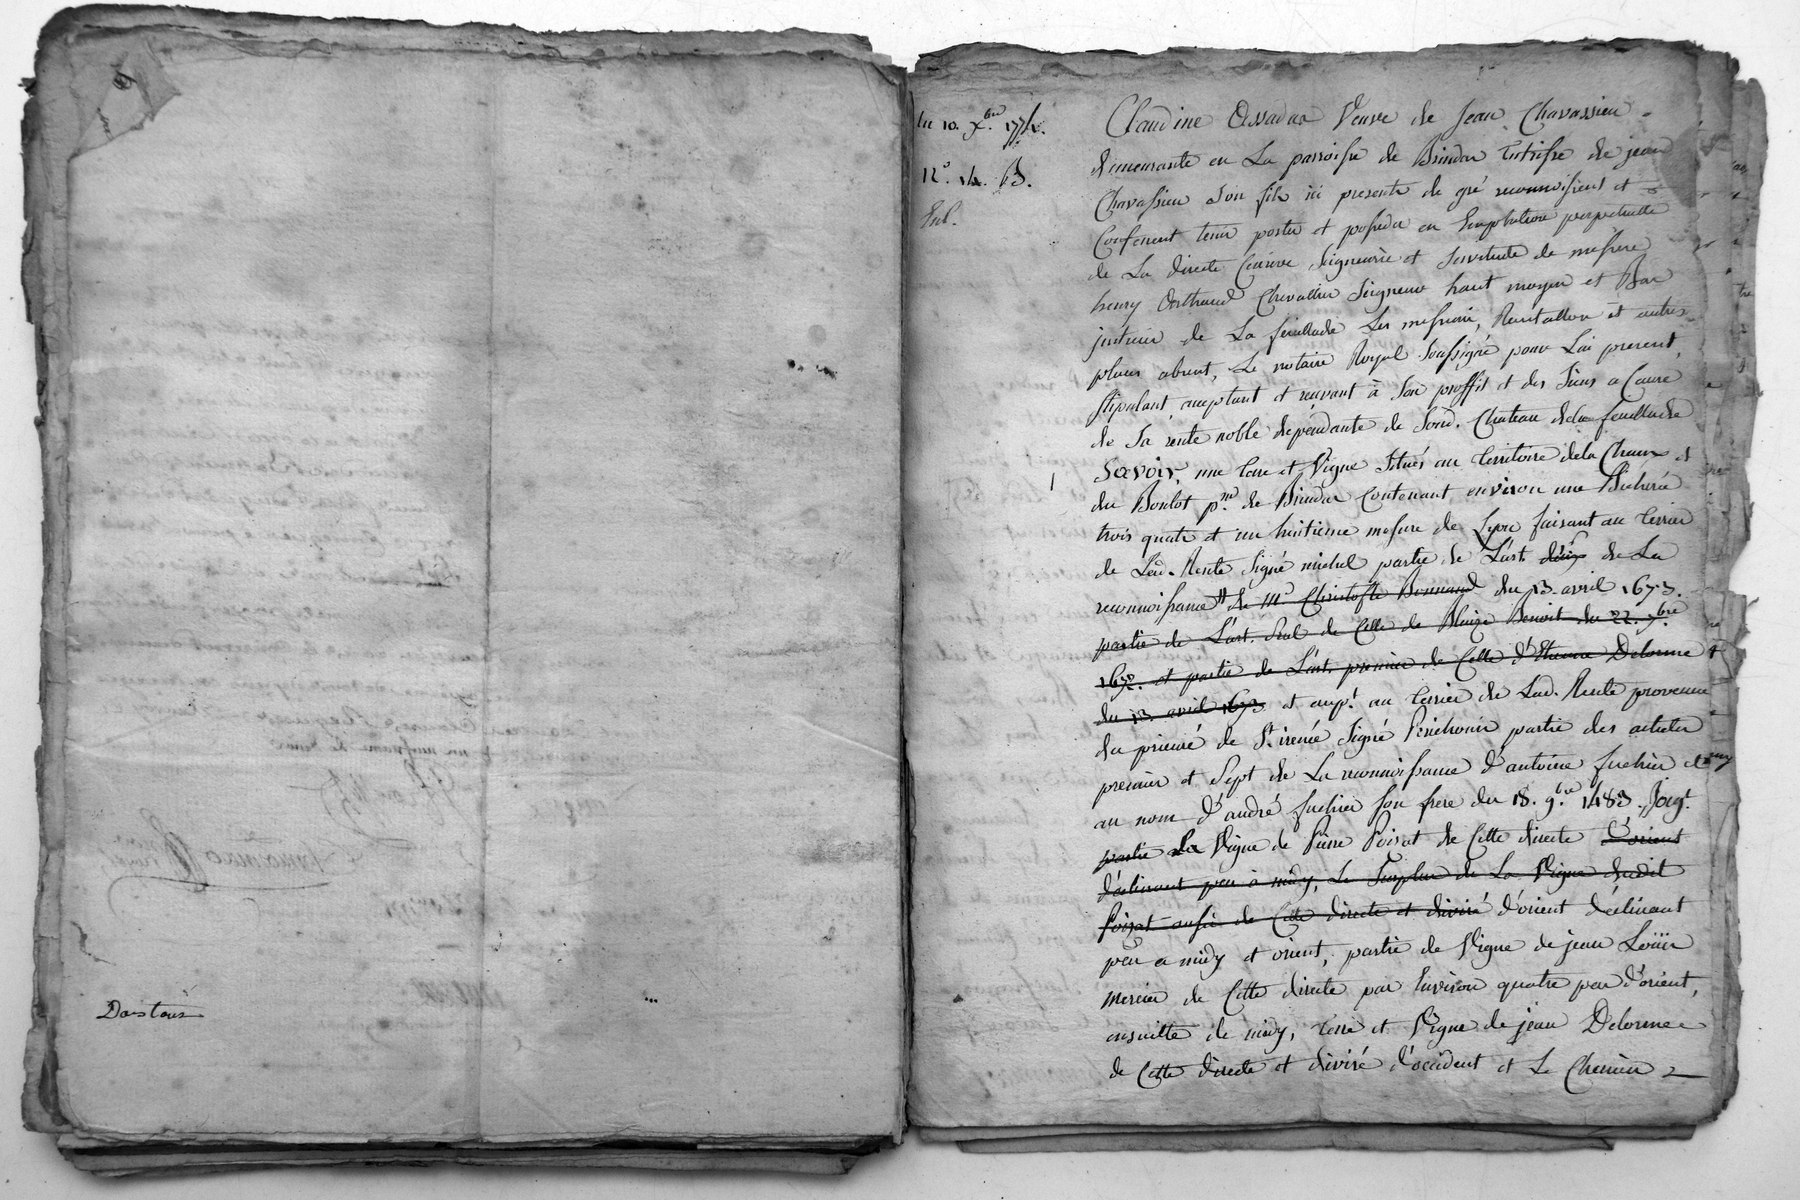 Dastour
du 10. Xbre 1774.
N.° 14. B.
Claudine Assadas Veuve de Jean Chavassieu
demeurante en La parroisse de Brindas autorisée de jean
Chavassieu son fils ici presente de gré reconnoissent et
Confessent tenir porter et posseder en Emphiteose perpetuelle
de La directe Censive Seigneurie et servitude de messire
henry Chevallier Seigneur haut moyen et Bas
justicier de La feuillade Les messimi, Rontallon et autres
places absent, Le notaire Royal soussigné pour Lui present,
stipulant, acceptant et recevant à son proffit et des siens a Cause
de sa rente noble dépendante de sond. Chateau dela feuillade
Sçavoir, une terre et Vigne situés au territoire dela Chaux et
du Boulot psse. de Brindas Contenant environ une Bicherée
trois quarts et un huitieme mesure de Lyon faisant au terrier
de Lad. Rente signé michel partie de L'art. deux de La
reconnoissance de Mr. Christofle Bonnand du 13. avril 1673.
partie de L'art. seul de Celle de Blaize Benoit du 22. 7.bre
1672. et partie de L'art. premier de Celle d'Etienne Delorme
du 13. avril 1673 et aupt. au terrier de Lad. Rente provenue
du prieuré de St. irenée signé Perichonin partie des articles
premier et sept de La reconnoissance d'antoine fuchier et
au nom d'andré fuchier son frere du 18. 9.bre 1483. Joigt.
partie La Vigne de Pierre Poizat de Cette directe L'orient
déclinant peu à midy, Le surplus de La Vigne dudit
Poizat aussi de Cette directe et divisé d'orient déclinant
peu a midy et orient, partie de Vigne de jean Loüis
mercier de Cette directe par Environ quatre pas d'orient,
ensuitte de midy, terre et Vigne de jean Delorme
de Cette directe et divisé d'occident et Le Chemin